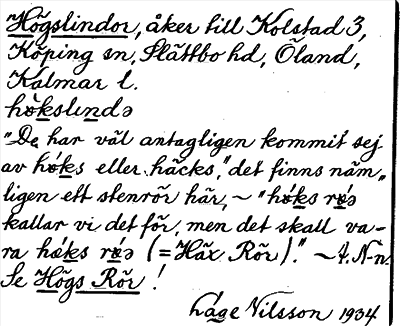 "Högslindor, åker till Kolstad 3,
Köping sn, Slättbo hd, Öland,
Kalmar l.
hökslində
"De har väl antagligen kommit sej
av höks eller häcks," det finns näm-
ligen ett stenrör här, ~ "höks röə
kallar vi det för, men det skall va-
ra häks röə (=Häx Rör)." ~ A. N-n.
Se Högs Rör!
Låge Nilsson 1934